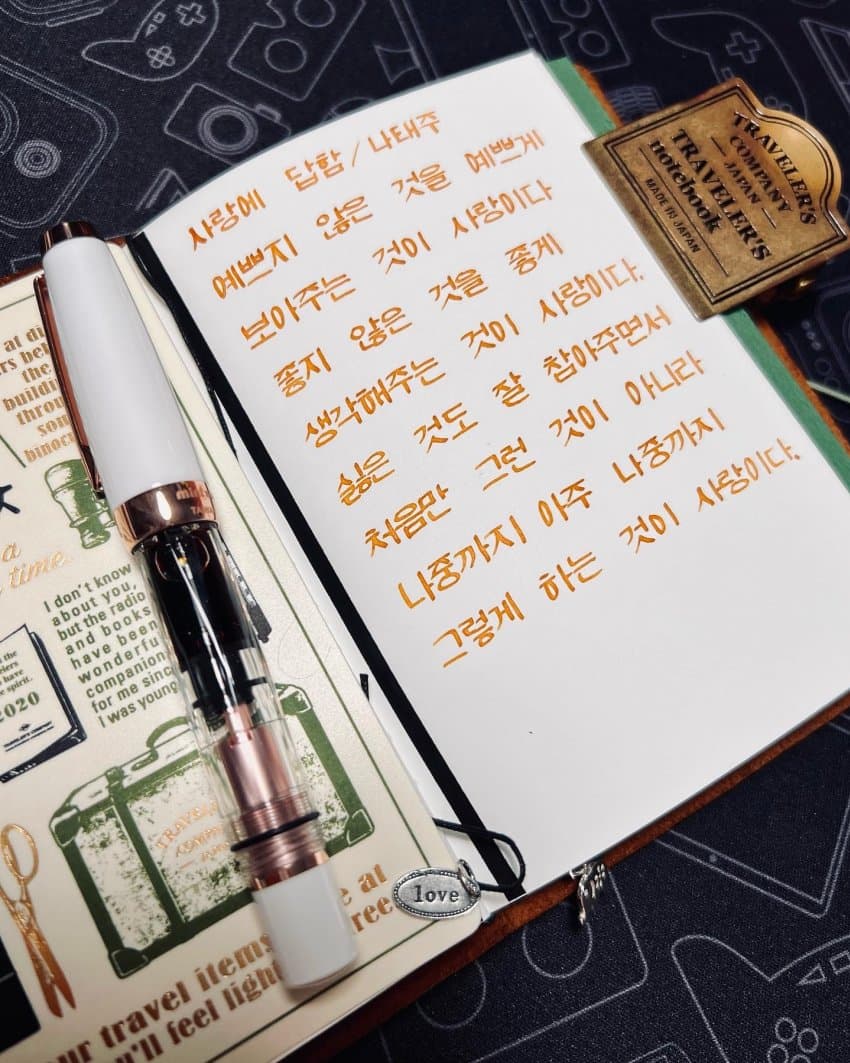 사랑에 답함 / 나태주
예쁘지 않은 것을 예쁘게
보아주는 것이 사랑이다
좋지 않은 것을 좋게
생각해주는 것이 사랑이다.
싫은 것도 잘 참아주면서
처음만 그런 것이 아니라
나중까지 아주 나중까지
그렇게 하는 것이 사랑이다.
TRAVELER'S
COMPANY
JAPAN
TRAVELER'S
notebook
MADE IN JAPAN
at
the
building
time.
I don't know
about you,
but the radio
and books
have been
wonderful
companion
for me sinc
I was young
spirit.
2020
love
at
ree
travel items
feel